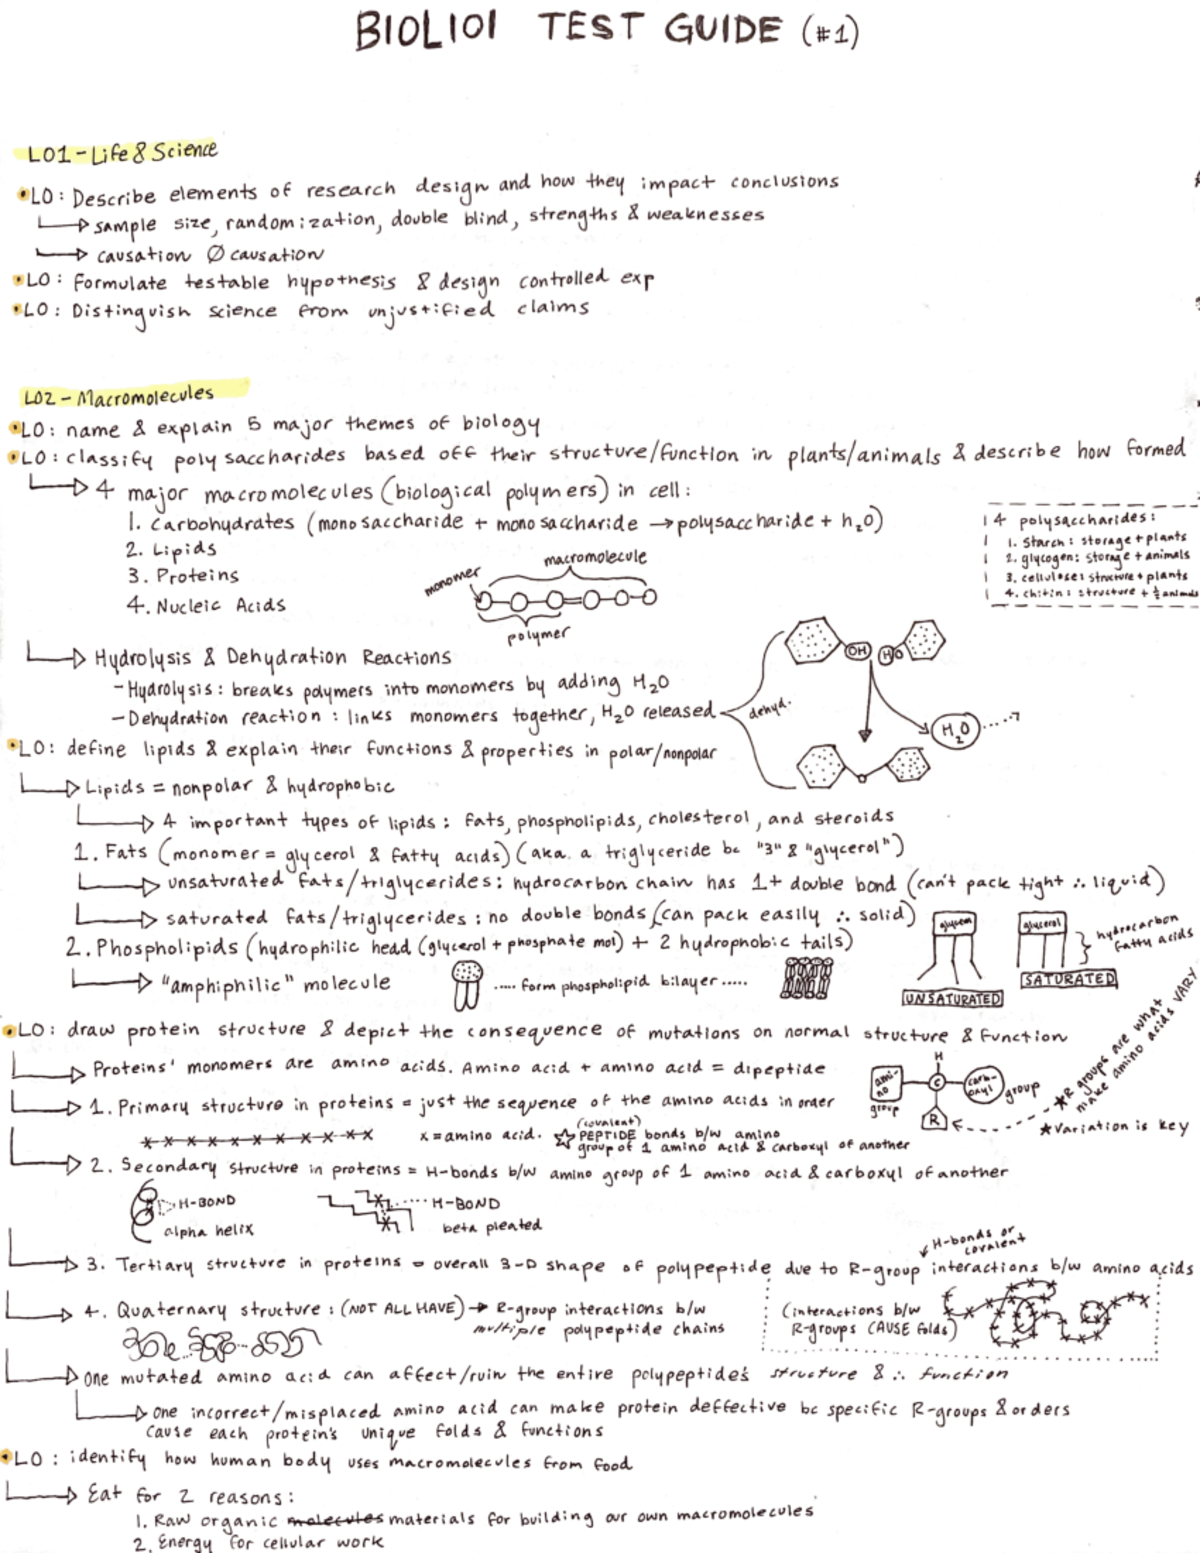 BIOL101 TEST GUIDE (#1)
LO1 - Life & Science
LO: Describe elements of research design and how they impact conclusions
sample size, randomization, double blind, strengths & weaknesses
causation Ø causation
LO: Formulate testable hypothesis & design controlled exp
LO: Distinguish science from unjustified claims
LO2 - Macromolecules
LO: name & explain 5 major themes of biology
LO: classify polysaccharides based off their structure/function in plants/animals & describe how formed
4 major macromolecules (biological polymers) in cell:
1. Carbohydrates (monosaccharide + monosaccharide → polysaccharide + h₂O)
2. Lipids
3. Proteins
4. Nucleic Acids
monomer
macromolecule
polymer
4 polysaccharides:
1. Starch: storage + plants
2. glycogen: storage + animals
3. cellulose: structure + plants
4. chitin: structure + ½ animals
Hydrolysis & Dehydration Reactions
- Hydrolysis: breaks polymers into monomers by adding H₂O
- Dehydration reaction: links monomers together, H₂O released
dehyd.
OH HO
H₂O
LO: define lipids & explain their functions & properties in polar/nonpolar
Lipids = nonpolar & hydrophobic
4 important types of lipids: fats, phospholipids, cholesterol, and steroids
1. Fats (monomer = glycerol & fatty acids) (aka. a triglyceride bc "3" & "glycerol")
unsaturated fats/triglycerides: hydrocarbon chain has 1+ double bond (can't pack tight ∴ liquid)
saturated fats/triglycerides: no double bonds (can pack easily ∴ solid)
2. Phospholipids (hydrophilic head (glycerol + phosphate mol) + 2 hydrophobic tails)
"amphiphilic" molecule
..... form phospholipid bilayer .....
UNSATURATED
glycerol
SATURATED
hydrocarbon
fatty acids
LO: draw protein structure & depict the consequence of mutations on normal structure & function
Proteins' monomers are amino acids. Amino acid + amino acid = dipeptide
1. Primary structure in proteins = just the sequence of the amino acids in order
x = amino acid. ☆ PEPTIDE bonds b/w amino
(covalent)
group of 1 amino acid & carboxyl of another
H
amino
group
C
carboxyl
group
R
★R groups are what
make amino acids VARY
★Variation is key
2. Secondary structure in proteins = H-bonds b/w amino group of 1 amino acid & carboxyl of another
H-BOND
alpha helix
H-BOND
beta pleated
H-bonds or
covalent
3. Tertiary structure in proteins = overall 3-D shape of polypeptide due to R-group interactions b/w amino acids
4. Quaternary structure: (NOT ALL HAVE) → R-group interactions b/w
multiple polypeptide chains
(interactions b/w
R-groups CAUSE folds)
One mutated amino acid can affect/ruin the entire polypeptide's structure & ∴ function
one incorrect/misplaced amino acid can make protein deffective bc specific R-groups & orders
cause each protein's unique folds & functions
LO: identify how human body uses macromolecules from food
Eat for 2 reasons:
1. Raw organic molecules materials for building our own macromolecules
2. Energy for cellular work